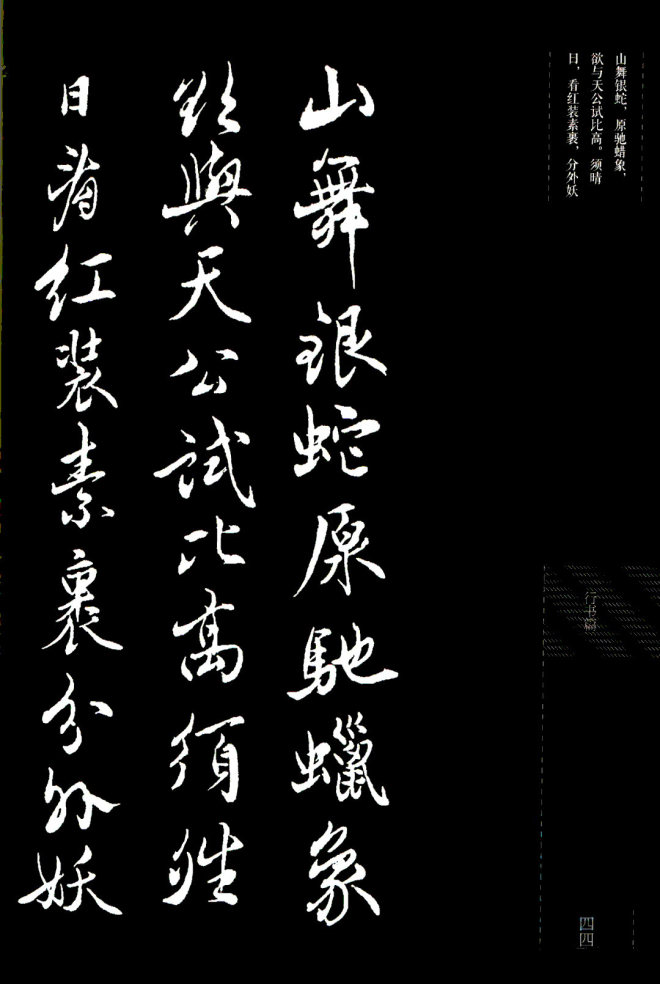 山舞银蛇，原驰蜡象，
欲与天公试比高。须晴
日，看红装素裹，分外妖
行书篇
四四
山舞銀蛇原馳蠟象
欲與天公试比高須晴
日看红装素裹分外妖